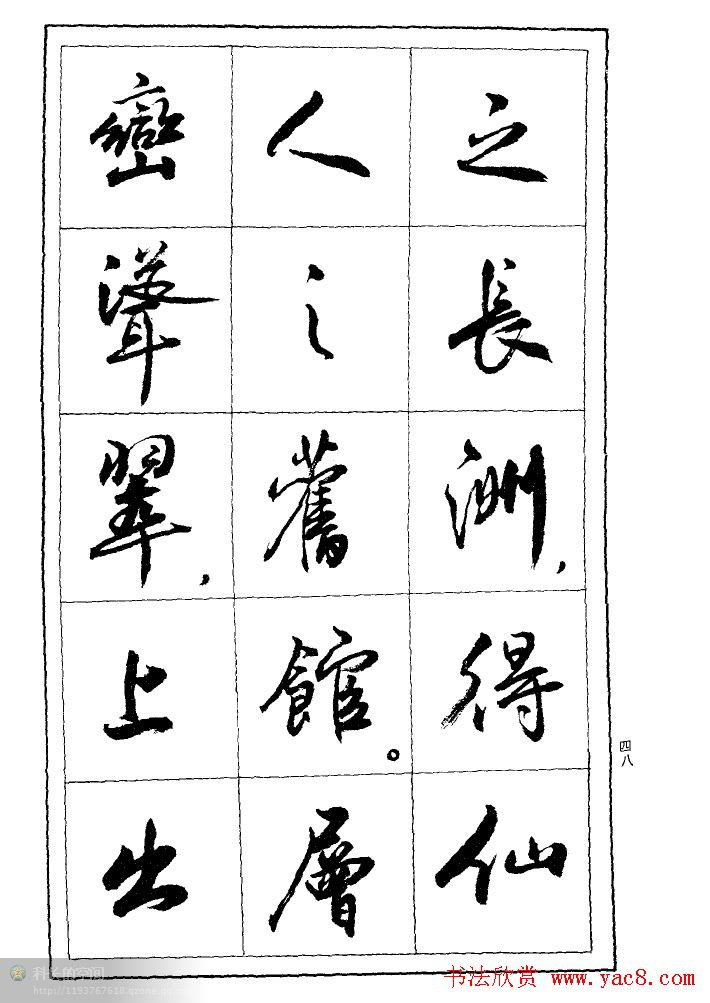 之長洲，得仙
人之舊館。層
巒聳翠，上出
四八
书法欣赏 www.yac8.com
http://1193767618.qzone.qq.co